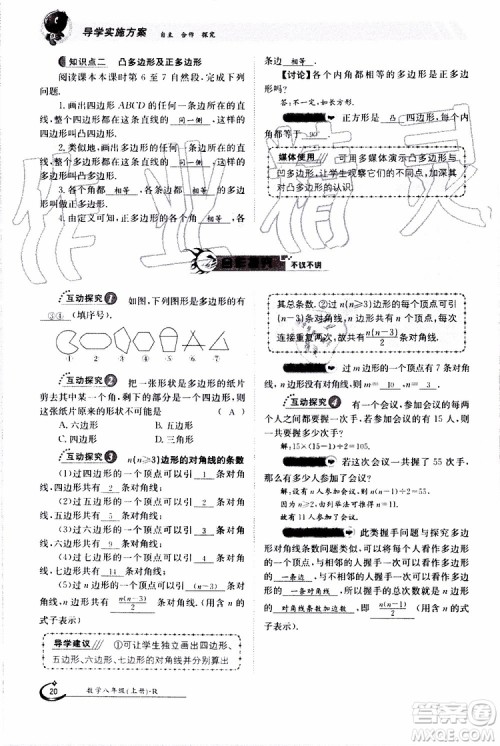 导学实施方案 自主 合作 探究
知识点二 凸多边形及正多边形
阅读课本本课时第 6 至 7 自然段,完成下列
问题.
1.画出四边形 ABCD 的任何一条边所在的直
线,整个四边形都在这条直线的 同一侧 ,这样的
四边形叫做凸四边形.
2.类似地,画出多边形的任何一条边所在的直
线,整个多边形都在这条直线的 同一侧 ,这样的
多边形叫做凸多边形.
3.各个角都 相等 ,各条边都 相等 的
多边形叫做正多边形.
4.由定义可知,正多边形的各个内角 相等 ,各
条边 相等 .
【讨论】各个内角都相等的多边形是正多边形吗?
答:不一定,如长方形.
正方形是 凸 四边形,每个内
角都等于 90° .
媒体使用 可用多媒体演示凸多边形与
凹多边形,让学生观察它们的不同点,加深
对凸多边形的认识.
不议不讲
互动探究 1 如图,下列图形是凸多边形的有
(填序号).
① ② ③ ④ ⑤ ⑥ ⑦
互动探究 2 把一张形状是多边形的纸片
剪去其中某一个角,剩下的部分是一个四边形,则
这张纸片原来的形状不可能是 ( A )
A.六边形 B.五边形
C.四边形 D.三角形
互动探究 3 n(n≥3)边形的对角线的条数
(1)过四边形的一个顶点可以引 1 条对角
线,四边形共有 2 条对角线;
(2)过五边形的一个顶点可以引 2 条对角
线,五边形共有 5 条对角线;
(3)过六边形的一个顶点可以引 3 条对角
线,六边形共有 9 条对角线;
(4)过七边形的一个顶点可以引 4 条对角
线,七边形共有 14 条对角线;
(5)过 n 边形的一个顶点可以引 (n-3) 条对
角线,n 边形共有 n(n-3)/2 条对角线.(用含 n 的
式子表示)
导学建议 ①可让学生独立画出四边
形、五边形、六边形、七边形的对角线并分别得出
其总条数.②过 n(n≥3)边形的每个顶点可引
(n-3)条对角线,n 个顶点可引 n(n-3)条,但
连接重复两次,故共有 n(n-3)/2 条对角线.
过 m 边形的一个顶点有 7 条对
角线,n 边形有 35 条对角线,则 m= 10 ,n= 10 .
互动探究 4 有 15 个人参加会议,每两
个人之间都要握一次手,共要握多少次手?
解:15×(15-1)÷2=105.
若这次会议一共握了 55 次手,
那么有几个人参加了会议?
解:设有 n 人参加会议,则 n(n-1)÷2=55,
即 n(n-1)=110,由列举法可得n=11.
故有 11 个人参加了会议.
此类握手问题与探究多边
形对角线条数问题类似,可以将每个人看作多边形
的一个顶点,将相邻的两个人握手看作多边形的
一条边 ,将不相邻的两个人握手看作多边形的
一条对角线 ,所以握手的总次数就是多边形
的 对角线条数加边数 ,即 n(n-1)/2 .(用含 n 的
式子表示)
20 数学八年级(上册)·R
作业精灵